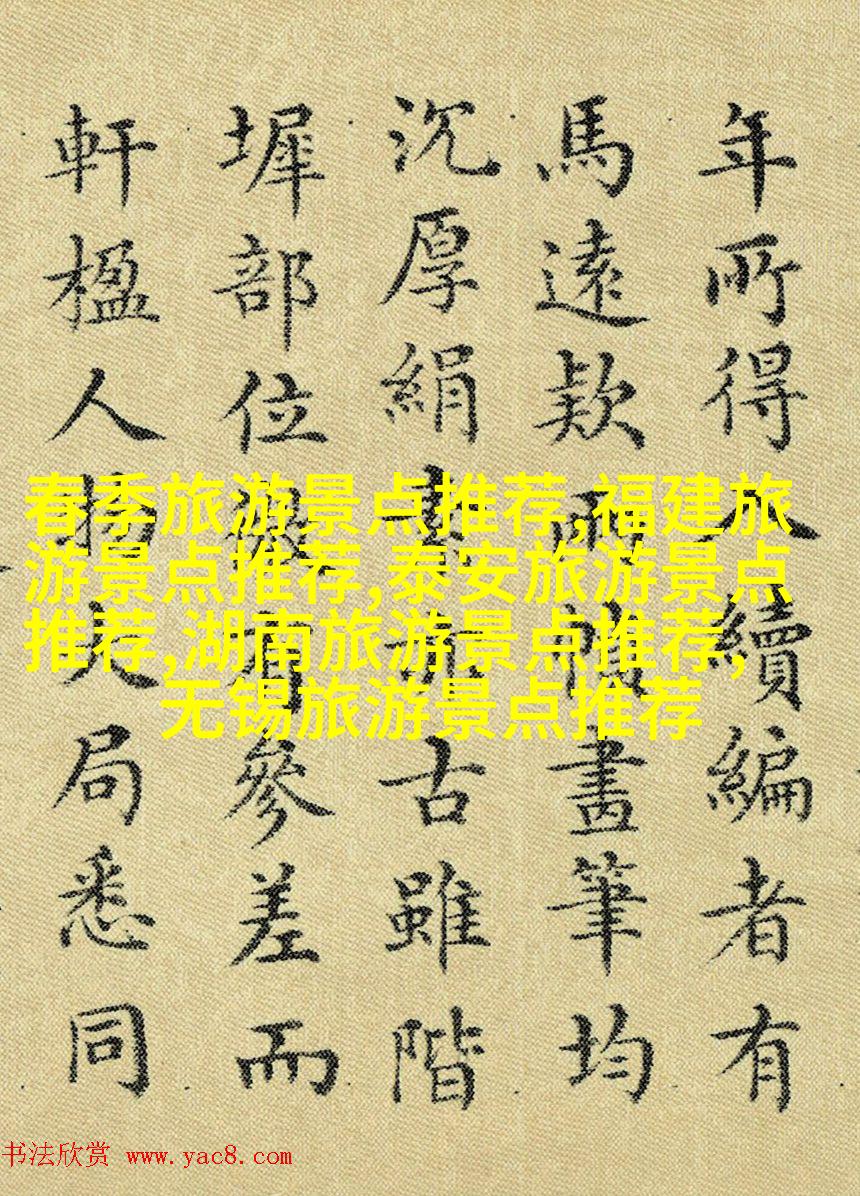 年所得入續編者有
馬遠款兩幀畫筆均
沉厚絹素亦古雖階
墀部位微有參差而
軒楹人物大局悉同
春季旅游景点推荐,福建旅
游景点推荐,泰安旅游景点
推荐,湖南旅游景点推荐,
无锡旅游景点推荐
书法欣赏 www.yac8.com